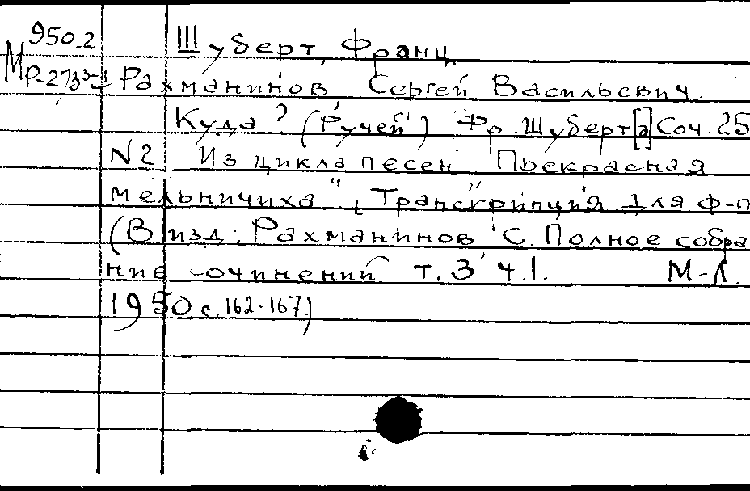 950.2 Шуберт, Франц
М Рахманинов Сергей Васильевич.
Куда? ("Ручей") Фр. Шуберт[а] Соч. 25
N2 Из цикла песен "Прекрасная
мельничиха". Транскрипция для ф-п
(В изд: Рахманинов С. Полное собра
ние сочинений т. 3 ч. 1. М-Л.
1950 с. 162-167)